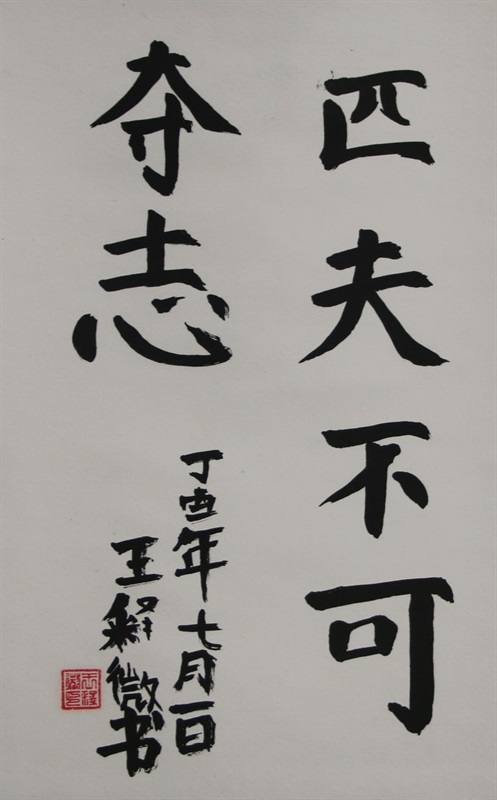 匹夫不可
夺志
丁酉年七月一日
王释微书